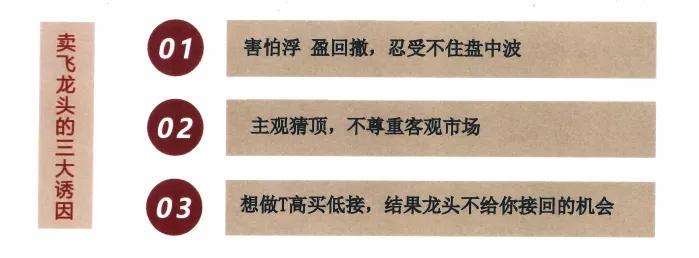 卖飞龙头的三大诱因
01
害怕浮 盈回撤，忍受不住盘中波
02
主观猜顶，不尊重客观市场
03
想做T高买低接，结果龙头不给你接回的机会